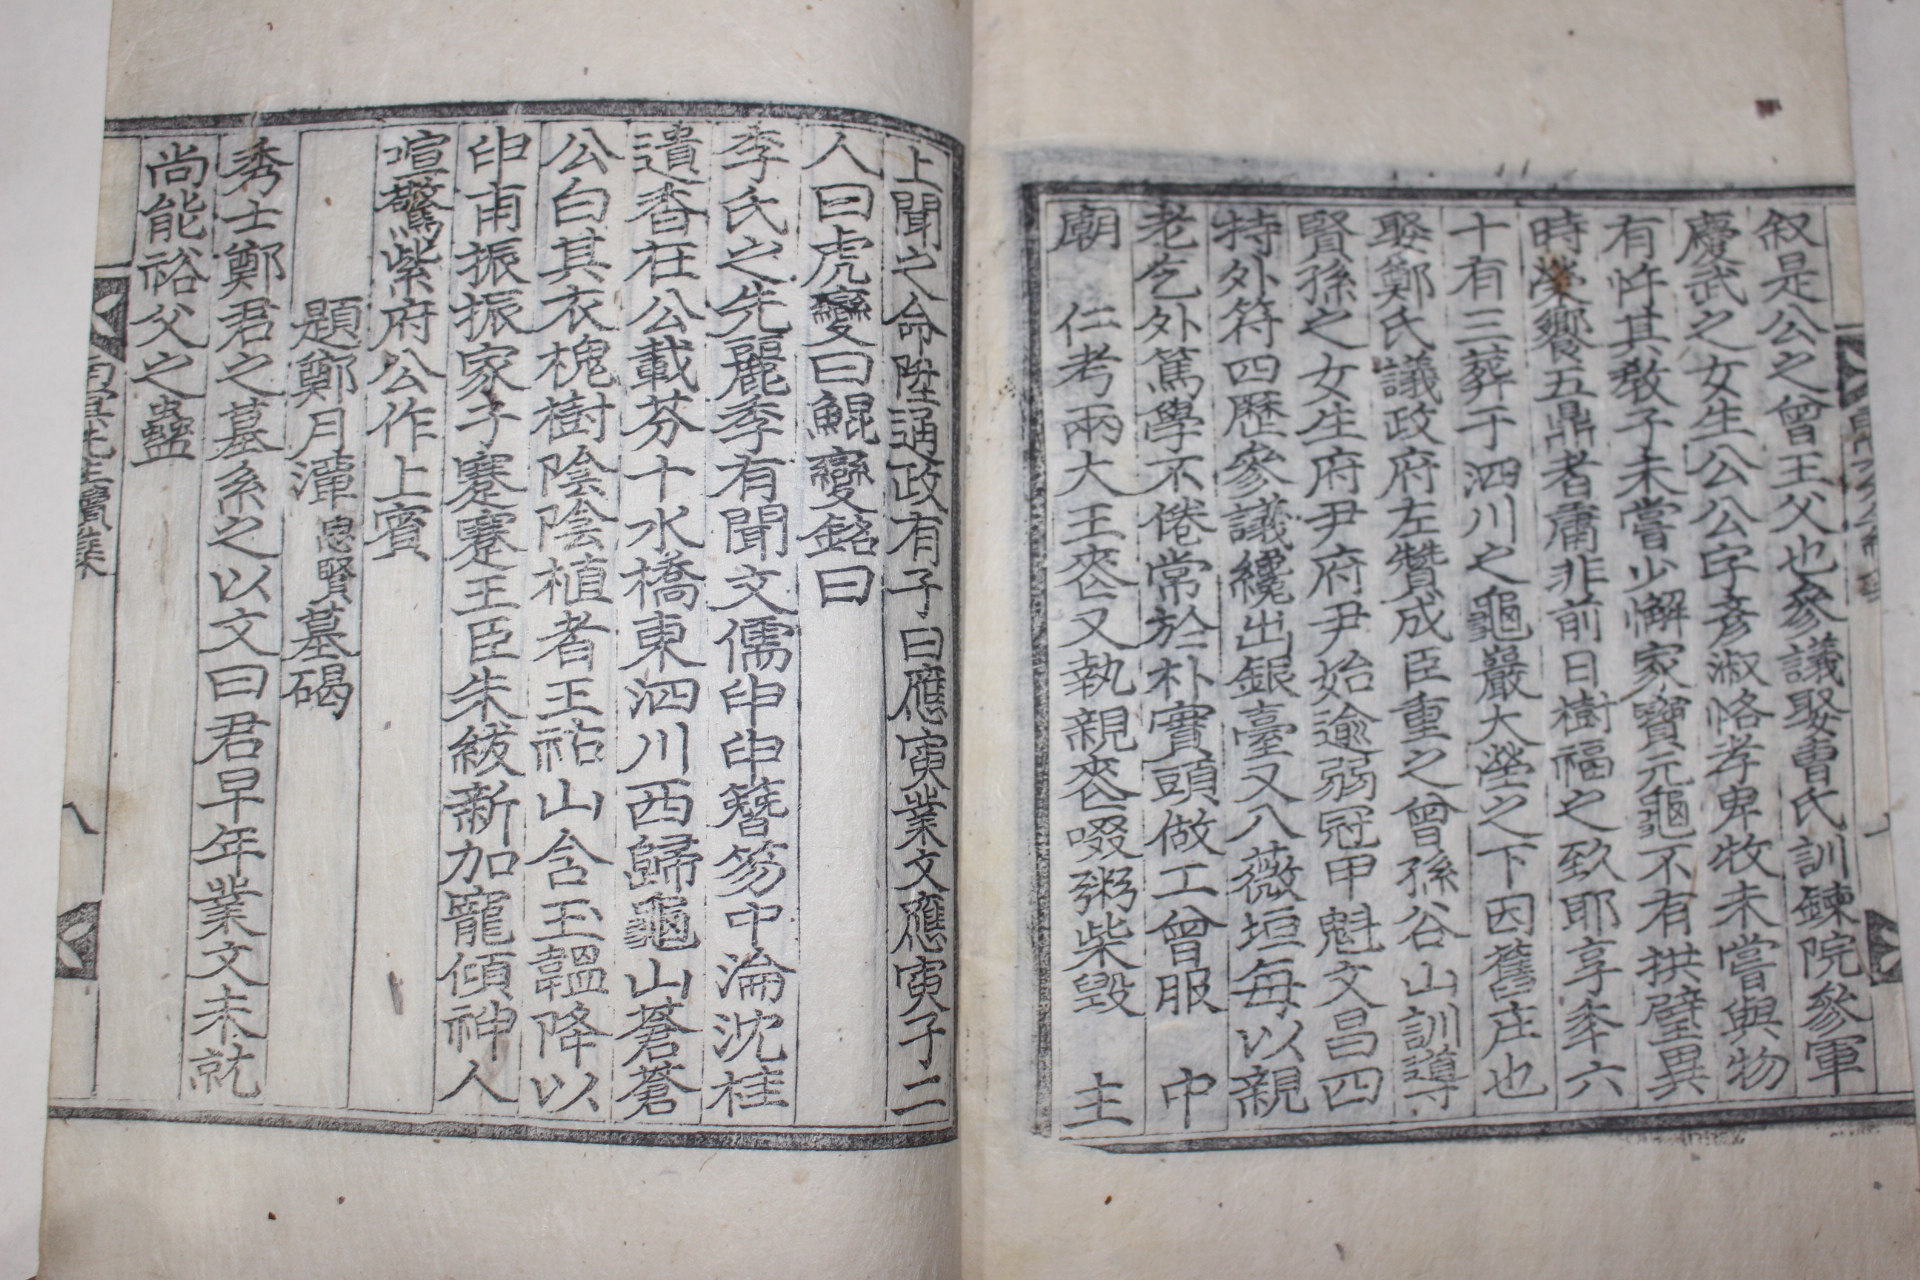 叙是公之曾王父也參議娶曹氏訓鍊院參軍
慶武之女生公公字彦淑恪孝卑牧未嘗與物
有忤其敎子未嘗少懈家寶元龜不有拱璧異
時榮饗五鼎者庸非前日樹福之致耶享年六
十有三葬于泗川之龜巖大塋之下因舊庄也
娶鄭氏議政府左贊成臣重之曾孫谷山訓導
賢孫之女生府尹府尹始逾弱冠甲魁文昌四
特外符四歷參議纔出銀臺又入薇垣每以親
老乞外篤學不倦常於朴實頭做工曾服 中
廟 仁考兩大王喪又執親喪啜粥柴毁 主
上聞之命陞通政有子曰應寅業文應寅子二
人曰虎變曰鯤變銘曰
李氏之先麗季有聞文儒申申簪笏中淪沈桂
遺香在公載芬十水橋東泗川西歸龜山蒼蒼
公白其衣槐樹陰陰植者王祐山含玉韞降以
申甫振振家子蹇蹇王臣朱紱新加寵傾神人
喧驚紫府公作上賓
題鄭月潭思賢墓碣
秀士鄭君之墓系之以文曰君早年業文未就
尚能裕父之蠱
先生續集
八